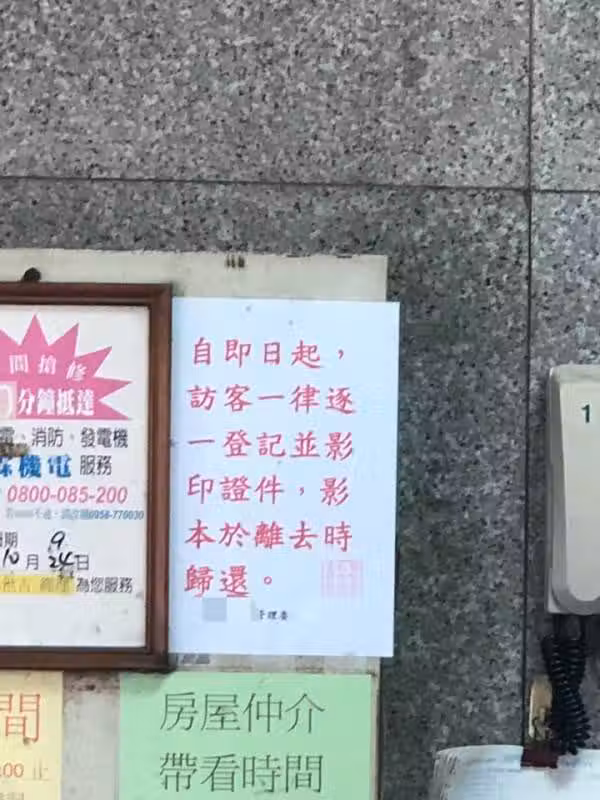 間搶修
分鐘抵達
電、消防、發電機
機電 服務
0800-085-200
期 9
10月24日
為您服務
自即日起，
訪客一律逐
一登記並影
印證件，影
本於離去時
歸還。
理委
間
:00 止
房屋仲介
帶看時間
1